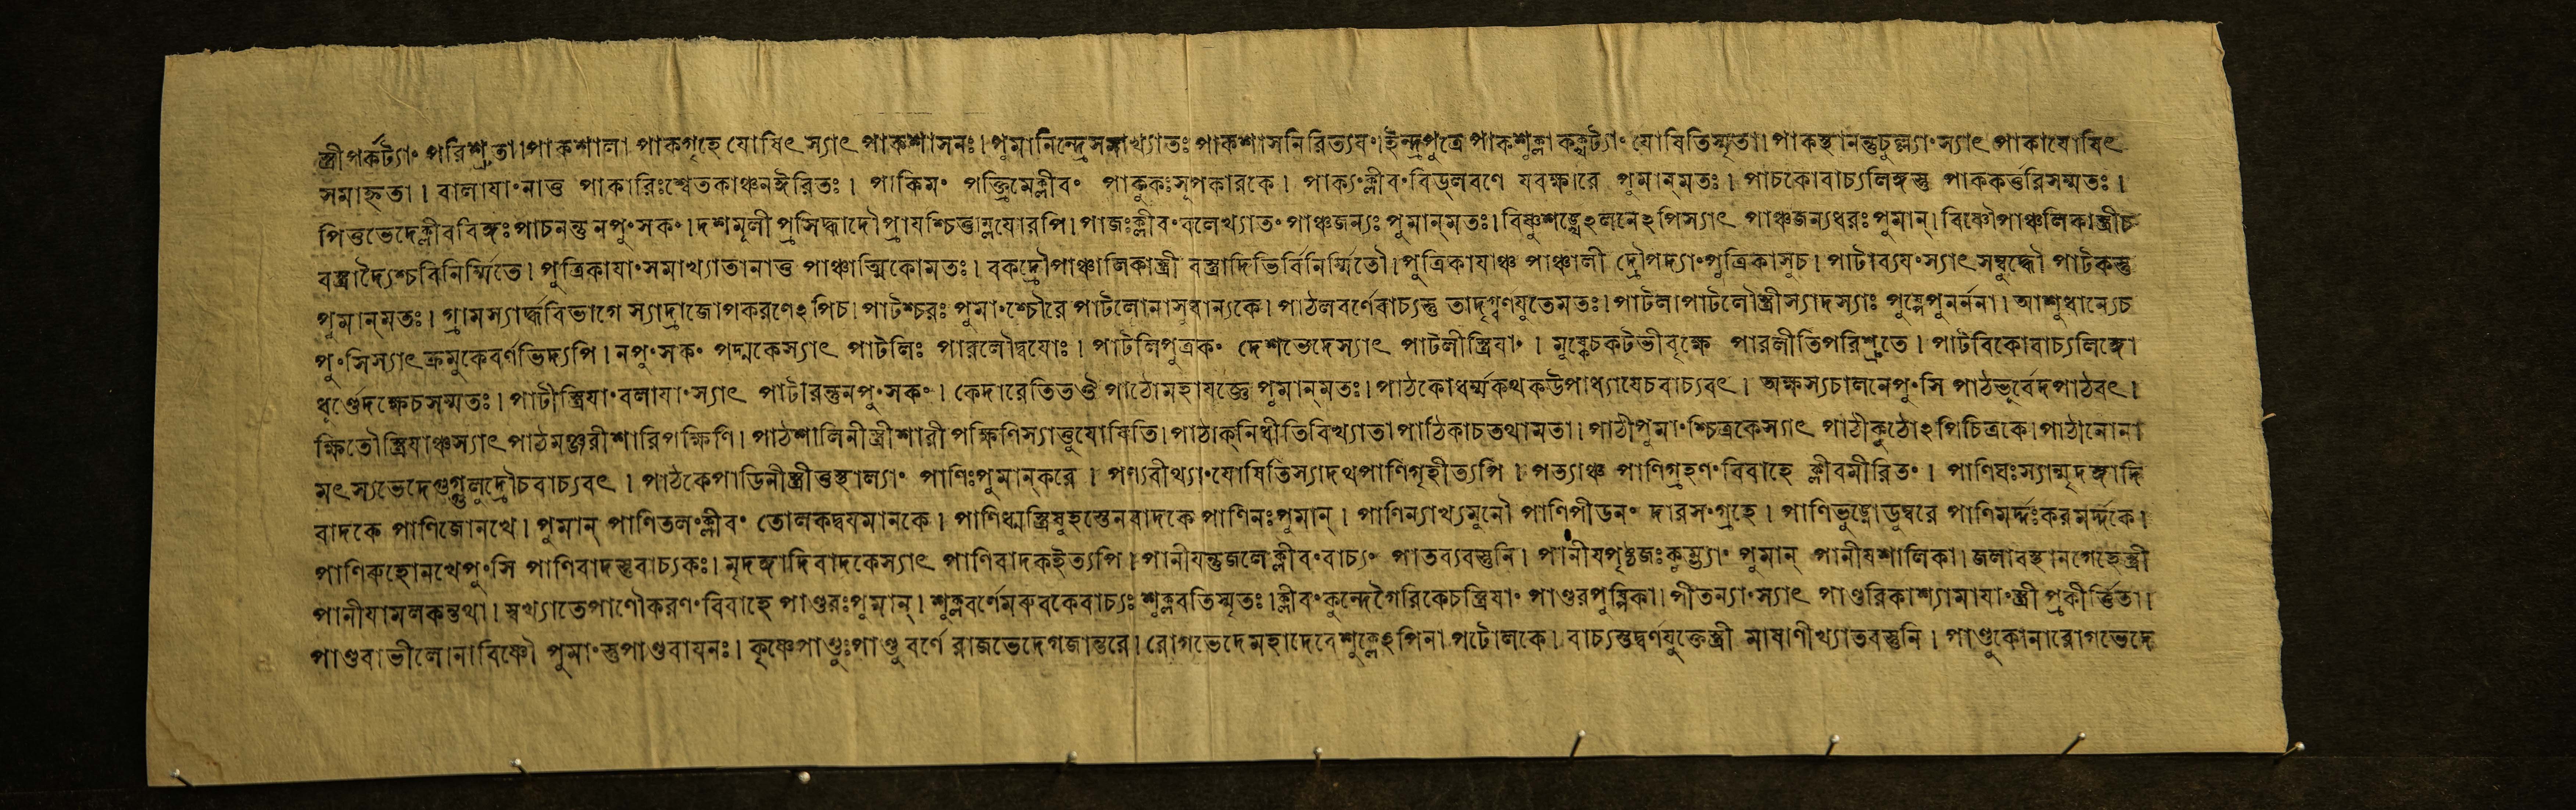 স্ত্রীপর্কট্যাং পরিশ্রুতা।পাকশালা পাকগৃহে যোষিৎ স্যাৎ পাকশাসনঃ।পুমানিন্দ্রেসমাখ্যাতঃ পাকশাসনিরিত্যযং।ইন্দ্রপুত্রে পাকশুক্লা কক্খট্যাং যোষিতিস্মৃতা।পাকস্থানন্তুচুল্ল্যাংস্যাৎ পাকাযোষিৎ
সমাহৃতা। বালাযাংনাত্ত পাকারিঃশ্বেতকাঞ্চনঈরিতঃ। পাকিমং পক্ত্রিমেক্লীবং পাকুকঃসূপকারকে। পাক্যংক্লীবংবিড্‌লবণে যবক্ষারে পুমান্‌মতঃ। পাচকোবাচ্যলিঙ্গস্তু পাককর্ত্তরিসম্মতঃ।
পিত্তভেদেক্লীববিঙ্গঃপাচনন্তু নপুংসকং।দশমূলী প্রসিদ্ধাদৌপ্রাযশ্চিত্তাম্লযোরপি।পাজঃক্লীবংবলেখ্যাতং পাঞ্চজন্যঃ পুমান্‌মতঃ।বিষ্ণুশঙ্খেঽলনেঽপিস্যাৎ পাঞ্চজন্যধরঃপুমান্‌।বিষ্ণৌপাঞ্চলিকাস্ত্রীচ
বস্ত্রাদ্যৈশ্চবিনির্ম্মিতে। পুত্রিকাযাংসমাখ্যাতানাত্ত পাঞ্চাত্মিকোমতঃ। বকদ্রৌপাঞ্চালিকাস্ত্রী বস্ত্রাদিভির্বিনির্ম্মিতৌ।পুত্রিকাযাঞ্চ পাঞ্চালী দ্রৌপদ্যাংপুত্রিকাসুচ। পাটাব্যযংস্যাৎসম্বুদ্ধৌ পাটকস্তু
পুমান্‌মতঃ। গ্রামস্যার্দ্ধবিভাগে স্যাদ্রাজোপকরণেঽপিচ।পাটশ্চরঃ পুমাংশ্চৌরে পাটলোনাসুবান্যকে। পাঠলবর্ণেবাচ্যস্তু তাদৃগ্বর্ণযুতেমতঃ।পাটলাপাটলৌস্ত্রীস্যাদস্যাঃ পুষ্পেপুনর্ননা। আশুধান্যেচ
পুংসিস্যাৎ ক্রমুকেবর্ণভিদ্যপি। নপুংসকং পদ্মকেস্যাৎ পাটলিঃ পারলৌদ্বযোঃ। পাটলিপুত্রকং দেশভেদেস্যাৎ পাটলীস্ত্রিযাং। মুষ্ককেচকটভীবৃক্ষে পারলীতিপরিশ্রুতে। পাটবিকোবাচ্যলিঙ্গো
ধূর্ত্তেদক্ষেচসম্মতঃ। পাটীস্ত্রিযাংবলাযাংস্যাৎ পাটারন্তুনপুংসকং। কেদারেতিতঔ পাঠোমহাযজ্ঞে পুমান্‌মতঃ।পাঠকোধর্ম্মকথকউপাধ্যাযেচবাচ্যবৎ। অক্ষস্যচালনেপুংসি পাঠভূর্বেদপাঠবৎ।
ক্ষিতৌস্ত্রিযাঞ্চস্যাৎ পাঠমঞ্জরীশারিপক্ষিণি। পাঠশালিনীস্ত্রীশারী পক্ষিণিস্যাত্তুযোষিতি।পাঠাক্‌নিধীতিবিখ্যাতা পাঠিকাচতথামতা। পাঠীপুমাংশ্চিত্রকেস্যাৎ পাঠীকুঠোঽপিচিত্রকে।পাঠানোনা
মৎস্যভেদেগুগ্গুলুদ্রৌচবাচ্যবৎ। পাঠকেপাডিনীস্ত্রীত্তস্থাল্যাং পাণিঃপুমান্‌করে। পণ্যবীথ্যাংযোষিতিস্যাদথপাণিগৃহীত্যপি। পত্যাঞ্চ পাণিগ্রহণংবিবাহে ক্লীবমীরিতং। পাণিঘঃস্যান্মৃদঙ্গাদি
বাদকে পাণিজোনখে। পুমান্‌ পাণিতলংক্লীবং তোলকদ্বযমানকে। পাণিধ্মস্ত্রিষুহস্তেনবাদকে পাণিনঃপুমান্‌। পাণিন্যাখ্যমুনৌ পাণিপীডনং দারসংগ্রহে। পাণিভুঙ্গোডুম্বরে পাণিমর্দ্দঃকরমর্দ্দকে।
পাণিরুহোনখেপুংসি পাণিবাদস্তুবাচ্যকঃ। মৃদঙ্গাদিবাদকেস্যাৎ পাণিবাদকইত্যপি। পানীযন্তুজলেক্লীবংবাচ্যং পাতব্যবস্তুনি। পানীযপৃষ্ঠজঃকুম্ভ্যাং পুমান্‌ পানীযশালিকা।জলাবস্থানগেহেস্ত্রী
পানীযামলকন্তথা। স্বখ্যাতেপাণৌকরণংবিবাহে পাণ্ডরঃপুমান্‌। শুক্লবর্ণেমরুবকেবাচ্যঃ শুক্লবতিস্মৃতঃ।ক্লীবংকুন্দেগৈরিকেচস্ত্রিযাং পাণ্ডরপুষ্পিকা। পীতন্যাংস্যাৎ পাণ্ডরিকাশ্যামাযাংস্ত্রী প্রকীর্ত্তিতা।
পাণ্ডবাভীলোনাবিষ্ণৌ পুমাংস্তুপাণ্ডবাযনঃ। কৃষ্ণেপাণ্ডুঃপাণ্ডু বর্ণে রাজভেদেগজান্তরে। রোগভেদেমহাদেবেশুক্লেঽপিনা পটোলকে। বাচ্যস্তুদ্বর্ণযুক্তেস্ত্রী মাষাণীখ্যাতবস্তুনি। পাণ্ডুকোনারোগভেদে